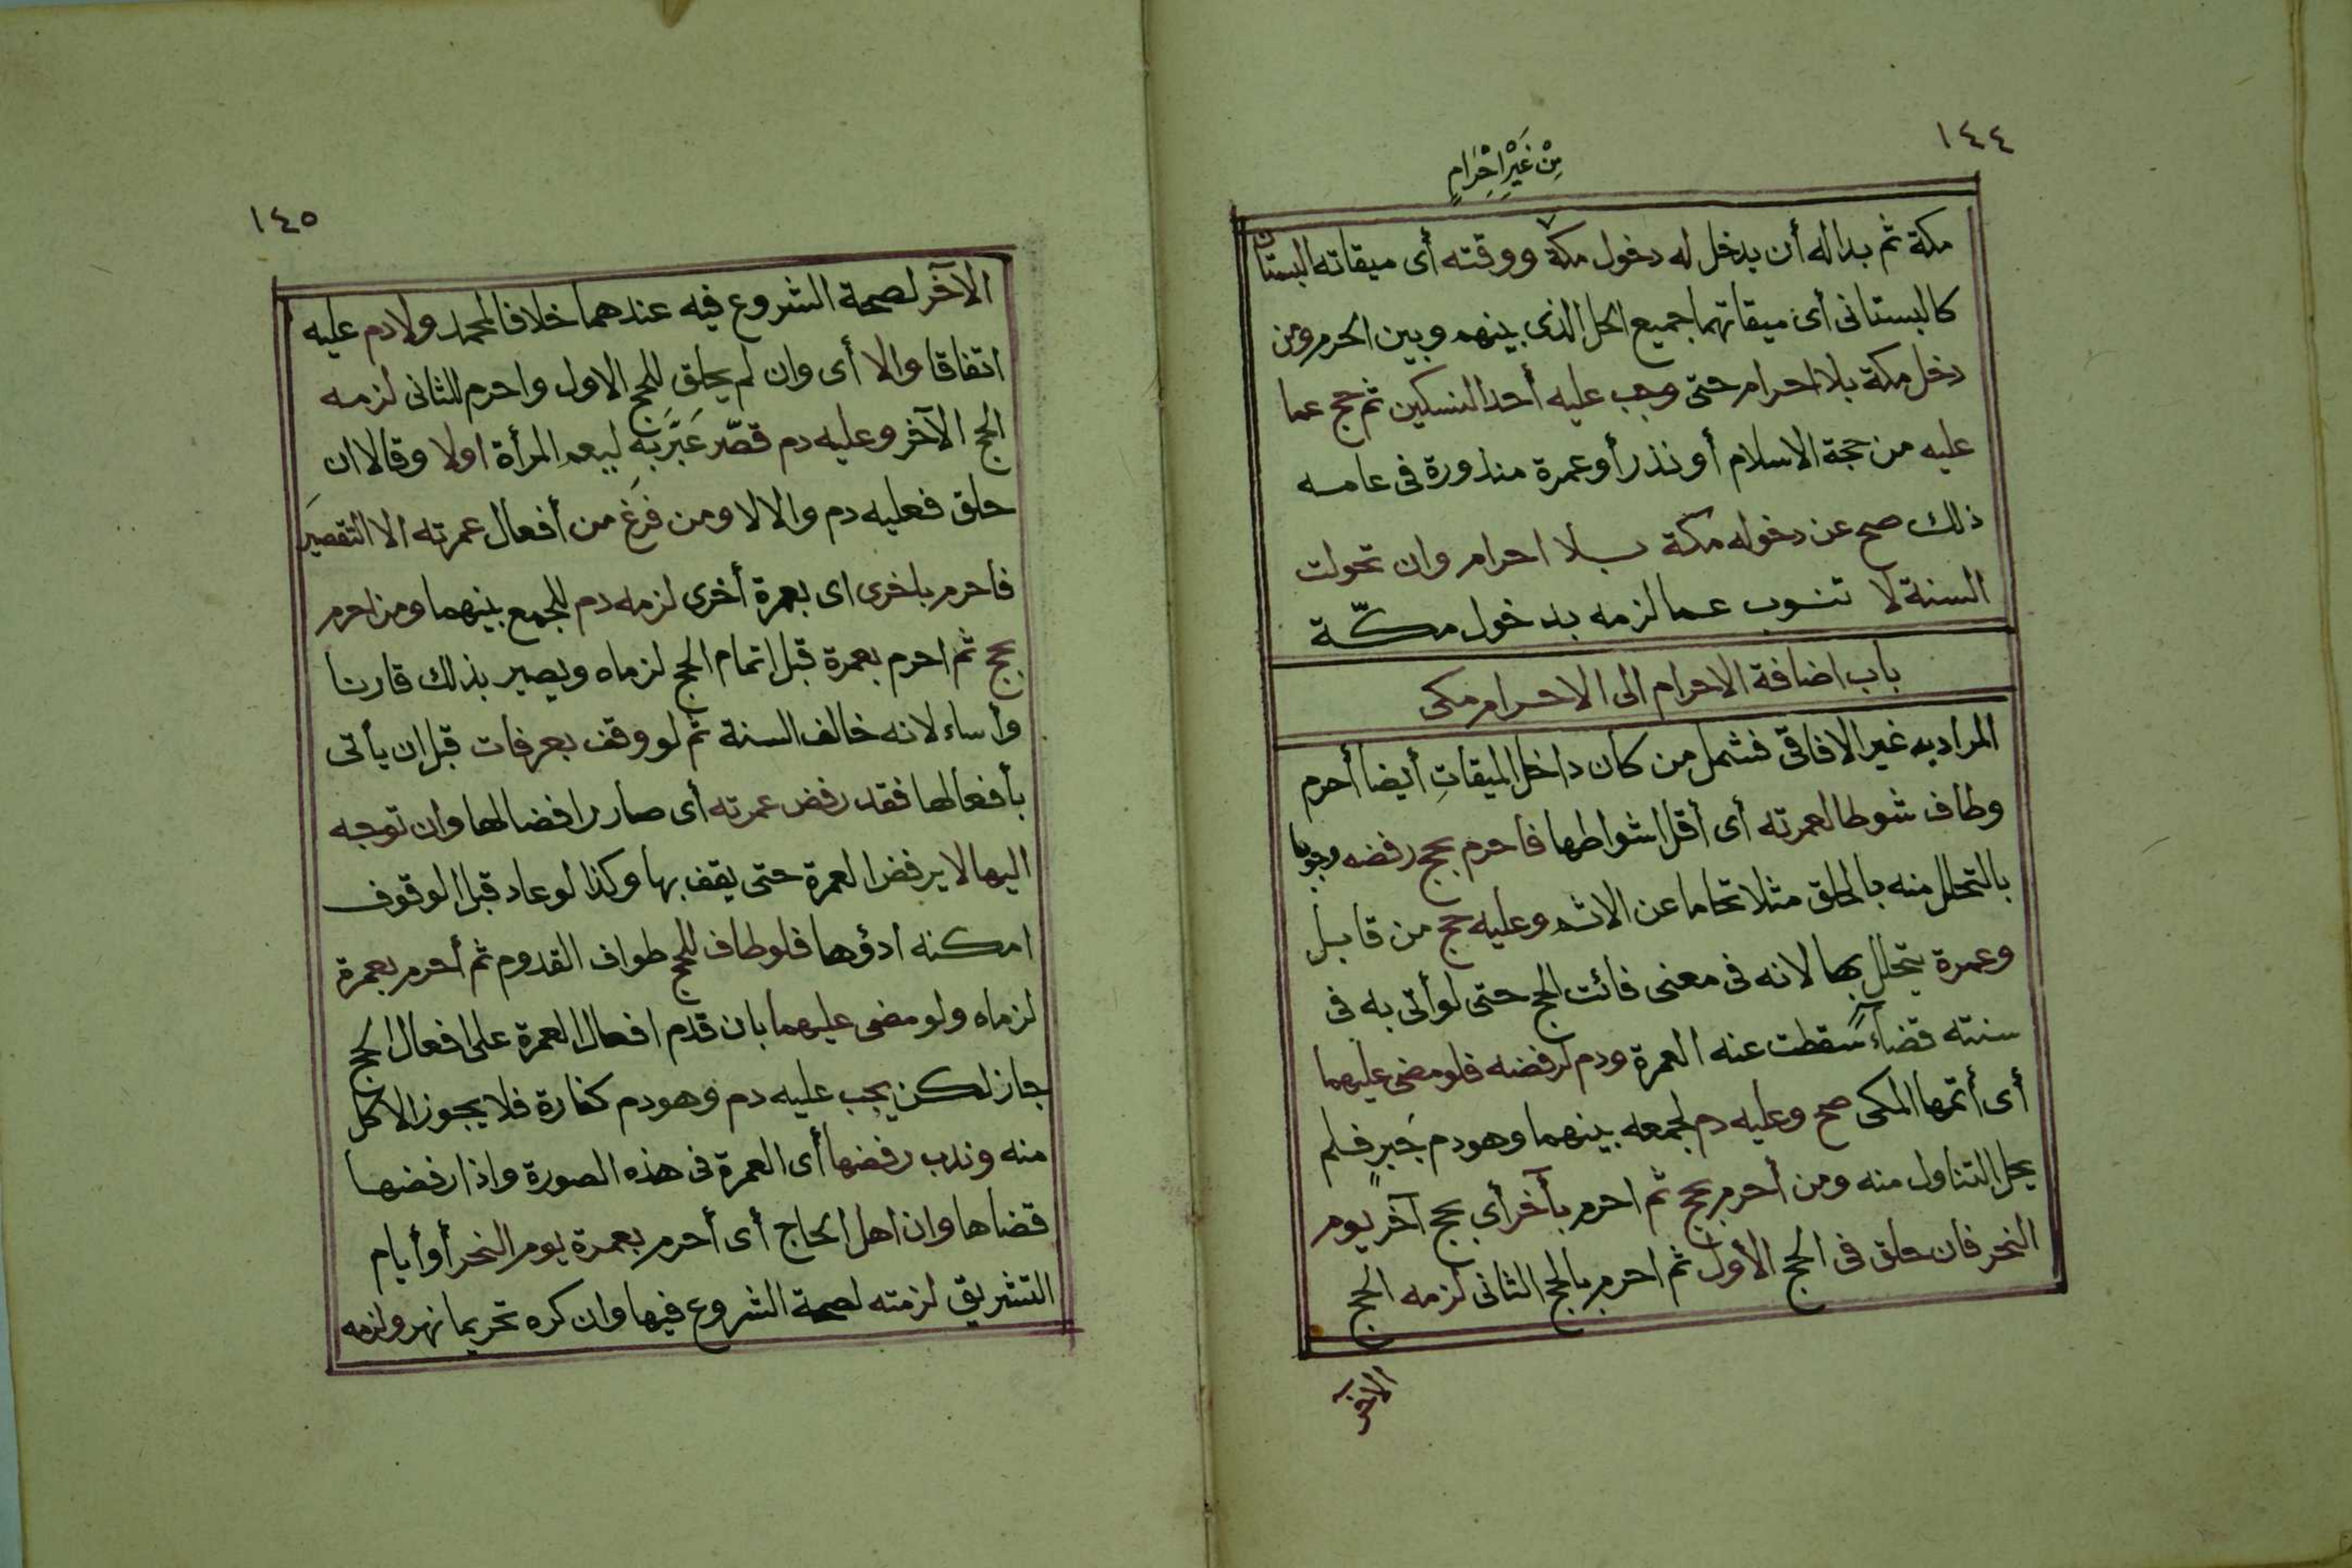 ١٤٤
مِنْ غَيْرِ اِحْرَامٍ
مكة ثم بدا له أن يدخل له دخول مكة ووقته أى ميقاته البستان
كالبستانى أى ميقاتهما جميع الحل الذى بينهم وبين الحرم ومن
دخل مكة بلا احرام حتى وجب عليه أحد النسكين ثم حج عما
عليه من حجة الاسلام أو نذر أو عمرة منذورة فى عامه
ذلك صح عن دخوله مكة بلا احرام وان تحولت
السنة لا تنوب عما لزمه بدخول مكّة
باب اضافة الاحرام الى الاحرام مكى
المراد به غير الافاقى فشمل من كان داخل الميقاتِ أيضا أحرم
وطاف شوطا لعمرته أى أقل اشواطها فأحرم بحج رفضه وجوبا
بالتحلل منه بالحلق مثلا تحاما عن الاثم وعليه حج من قابل
وعمرة يتحلل بها لانه فى معنى فائت الحج حتى لو أتى به فى
سنته قضاءً سقطت عنه العمرة ودم لرفضه فلو مضى عليهما
أى أتمها المكى صح وعليه دم لجمعه بينهما وهو دم جَبرٍ فلم
يحل التناول منه ومن أحرم بحج ثم احرم بآخر أى بحج آخر يوم
النحر فان حلق فى الحج الأول ثم احرم بالحج الثانى لزمه الحج
الآخر
١٤٥
الآخر لصحة الشروع فيه عندهما خلافا لمحمد ولا دم عليه
اتفاقا والا أى وان لم يحلق للحج الاول واحرم للثانى لزمه
الحج الآخر وعليه دم قصّر عَبَّرَ به ليعم المرأة اولا وقالا ان
حلق فعليه دم والا لا ومن فَرَغ من أفعال عمرته الا التقصيرَ
فأحرم باخرى اى بعمرة أخرى لزمه دم للجمع بينهما ومن احرم
بحج ثم احرم بعمرة قبل اتمام الحج لزماه ويصير بذلك قارنا
وأساء لانه خالف السنة ثم لو وقف بعرفات قبل ان يأتى
بأفعالها فقد رفض عمرته أى صار رافضا لها وان توجه
اليها لا يرفض العمرة حتى يقف بها وكذا لو عاد قبل الوقوف
امكنه ادؤها فلو طاف للحج طواف القدوم ثم أحرم بعمرة
لزماه ولو مضى عليهما بان قدم افعال العمرة على افعال الحج
جاز لكن يجب عليه دم وهو دم كفارة فلا يجوز الاكل
منه وندب رفضها أى العمرة فى هذه الصورة واذا رفضها
قضاها وان اهل الحاج أى أحرم بعمرة يوم النحر أو أيام
التشريق لزمته لصحة الشروع فيها وان كره تحريما نهر ولزمه